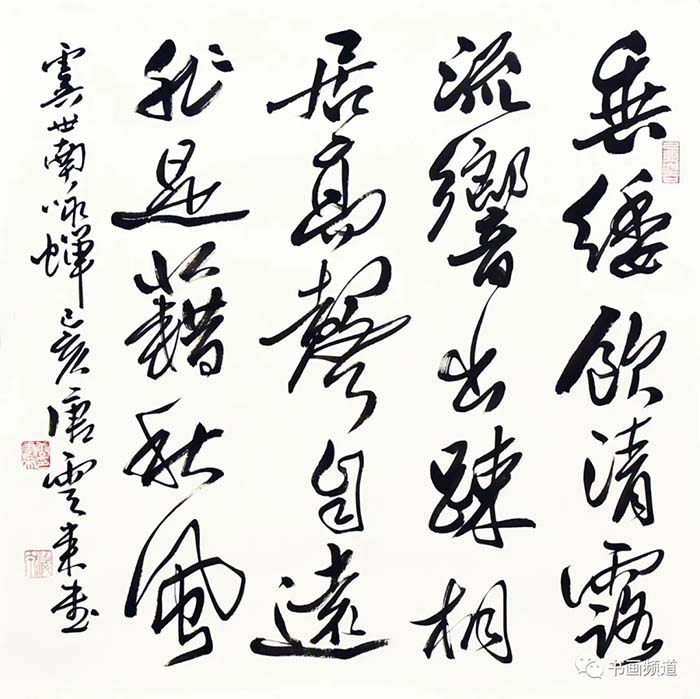 垂緌飲清露
流響出踈桐
居高聲自遠
非是藉秋風
虞世南咏蝉 己亥 唐雲来書
书画频道